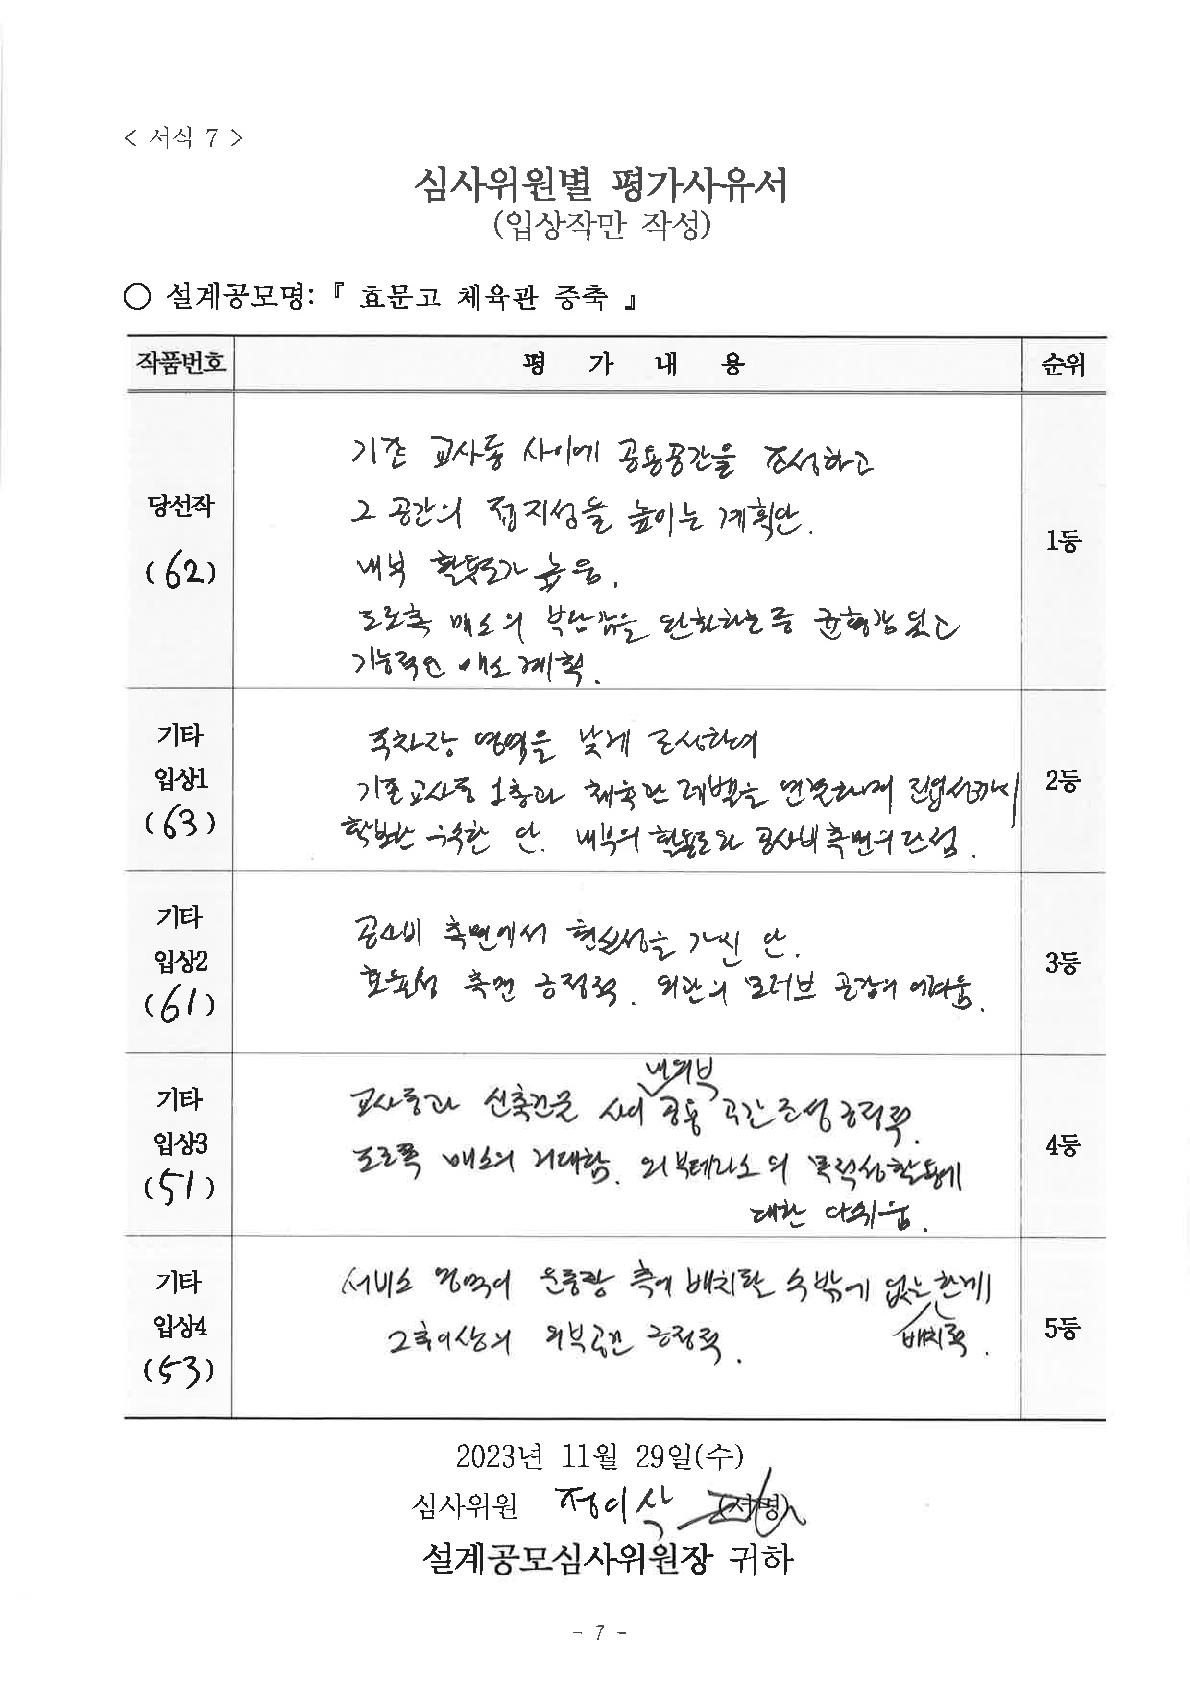 < 서식 7 >
심사위원별 평가사유서
(입상작만 작성)
○ 설계공모명: 『 효문고 체육관 증축 』
작품번호 평 가 내 용 순위
당선작
(62)
기존 교사동 사이에 공용공간을 조성하고
그 공간의 접지성을 높이는 계획안.
내부 활용도가 높음.
도로측 매스의 부담감을 완화하는 등 균형감 있고
기능적인 매스계획.
1등
기타
입상1
(63)
주차장 영역을 낮게 조성하여
기존교사동 1층과 체육관 레벨을 연결하며 진입성까지
확보한 우수한 안. 내부의 활용도와 공사비측면의 단점.
2등
기타
입상2
(61)
공사비 측면에서 현실성을 가진 안.
효율성 측면 긍정적. 외관의 모티브 공감의 어려움.
3등
기타
입상3
(51)
교사동과 신축건물 사이 내외부 공용 공간조성 긍정적.
도로쪽 매스의 거대함. 외부테라스의 목적성 활용에
대한 아쉬움.
4등
기타
입상4
(53)
서비스 영역이 운동장 측에 배치될 수밖에 없는 배치적 한계
2층이상의 외부공간 긍정적.
5등
2023년 11월 29일(수)
심사위원 정이삭 (서명)
설계공모심사위원장 귀하
- 7 -